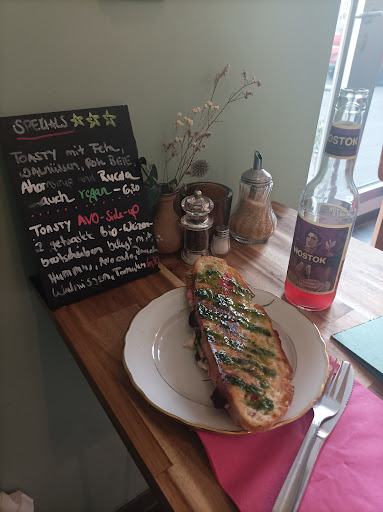 SPECIALS
TOASTY mit Feta,
Walnüssen, Rote BEETE,
Ahornsirup und Rucola
auch vegan - 6,80
TOASTY AVO-Side-up
2 getoastete Bio-Weizen
brotscheiben belegt mit
Hummus, Avocado,
Walnüssen, Tomaten
WOSTOK
WOSTOK